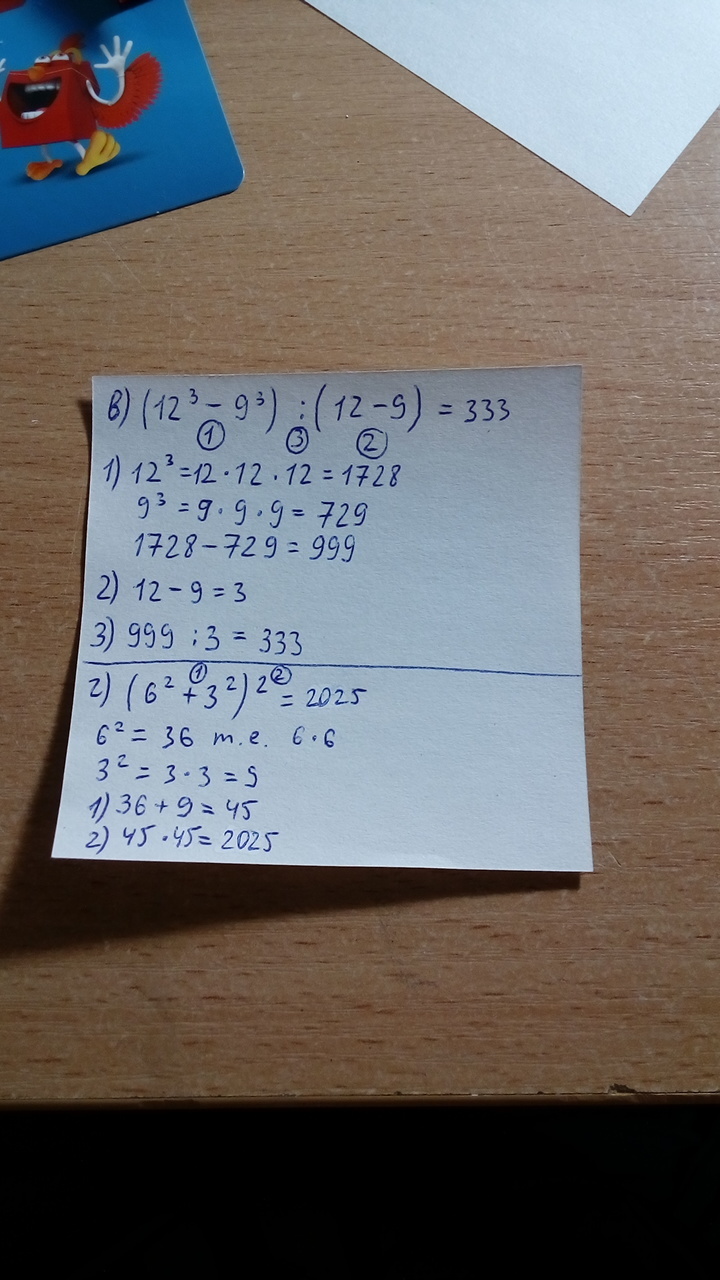 в) (12³ - 9³) : (12 - 9) = 333
① ③ ②
1) 12³ = 12 · 12 · 12 = 1728
9³ = 9 · 9 · 9 = 729
1728 - 729 = 999
2) 12 - 9 = 3
3) 999 : 3 = 333
① ②
г) (6² + 3²)2 = 2025
6² = 36 т.е. 6 · 6
3² = 3 · 3 = 9
1) 36 + 9 = 45
2) 45 · 45 = 2025